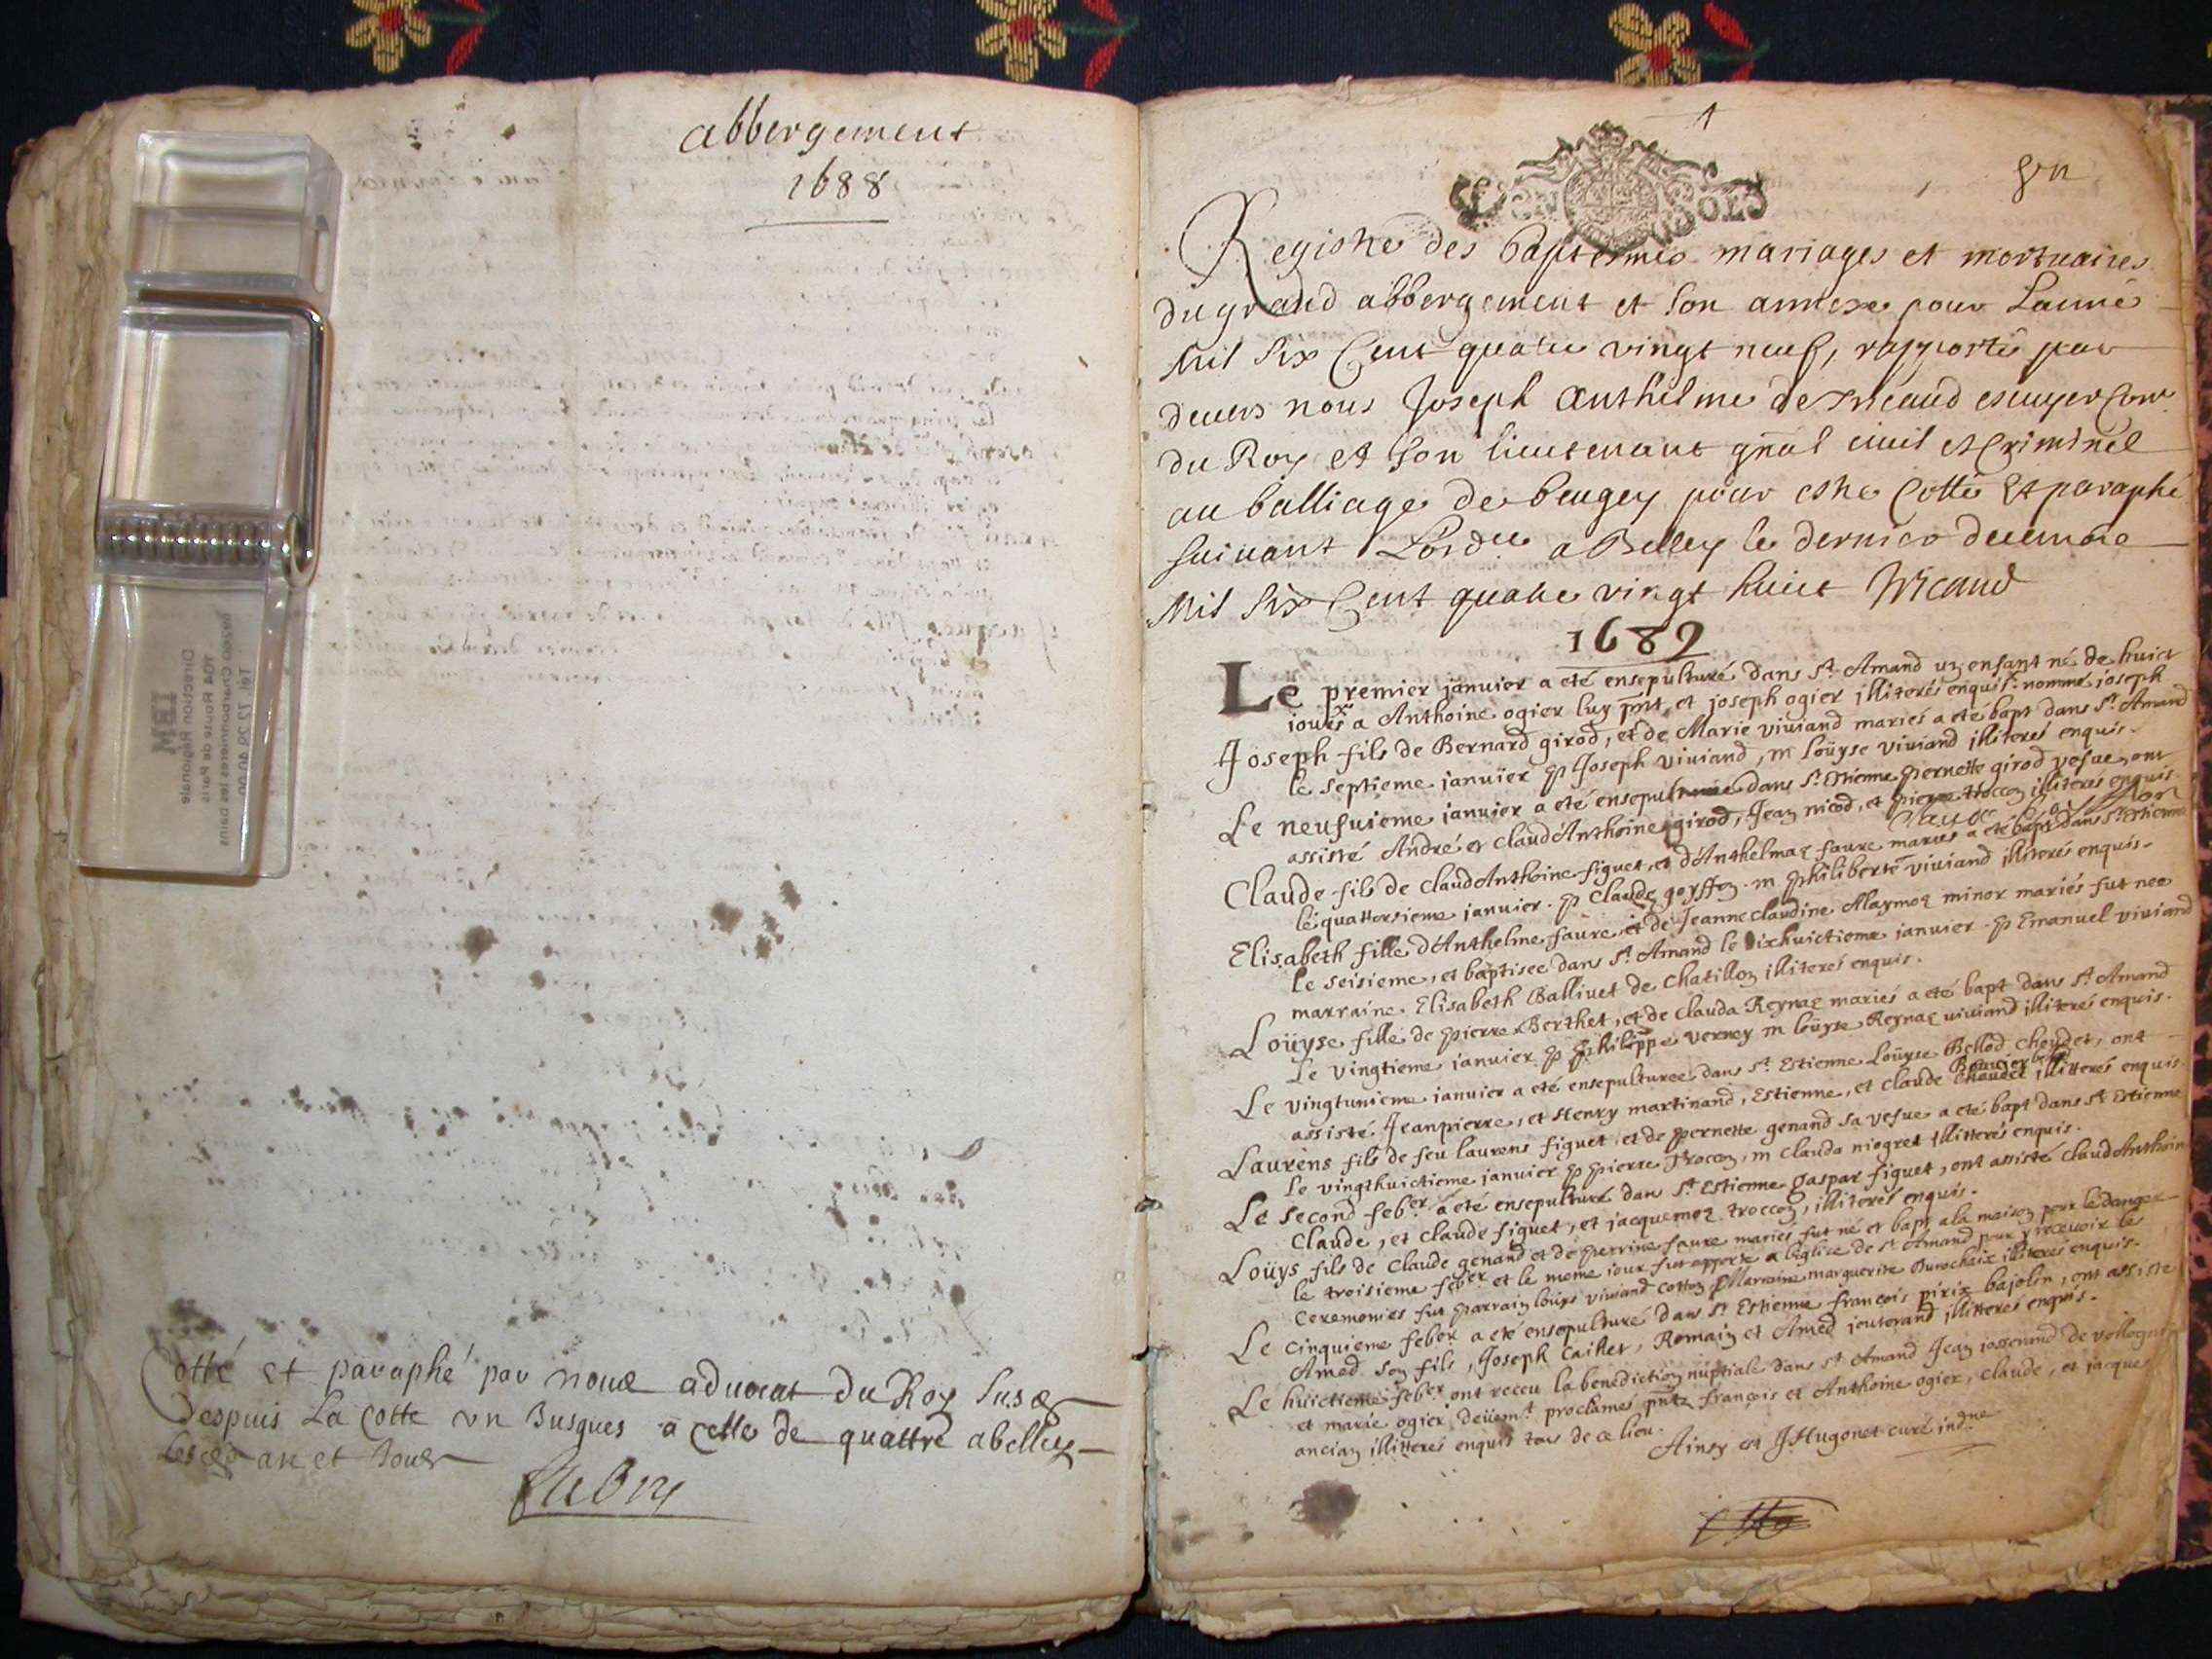 abbergement
1688
Cotté et paraphé par nous advocat du Roy
despuis La cotte un Jusques a celle de quattre a belley
an et Jour
IBM
Direction Régionale
104 Route de Paris
Charbonnieres les bains
1
UN SOLS
un
Registre des baptesmes mariages et mortuaires
du grand abbergement et son annexe pour Lanné
Mil Six Cent quatre vingt neuf, rapporté par
devers nous Joseph Anthelme de Tricaud escuyer Conr
du Roy et son lieutenant gnal civil et Criminel
au balliage de beugey pour estre Cotté et paraphé
suivant Lordce a Belley le dernier decembre
Mil Six Cent quatre vingt huict Tricaud
1689
Le premier janvier a eté ensepulturé dans St Amand un enfant né de huict
iours a Anthoine ogier luy pnt et joseph ogier illiterés enquis. nommé joseph
Joseph fils de Bernard girod, et de Marie viviand mariés a eté bapt dans St Amand
le septieme janvier p Joseph viviand, m loüyse viviand illiterés enquis.
Le neufvieme janvier a eté ensepulturée dans St Estienne pernette girod vefve, ont
assisté André et Claud Anthoine girod, Jean nicod, et pierre troccon illiterés enquis.
Claude fils de Claud Anthoine figuet, et d'Anthelmaz favre mariés a eté bapt dans St Estienne
le quattorsieme janvier. p Claude goyffon. m philiberte viviand illiterés enquis.
Elisabeth fille d'Anthelme favre et de Jeanne claudine Alaymoz minor mariés fut nee
le seisieme, et baptisee dans St Amand le dixhuictieme janvier. p Emanuel viviand
marraine Elisabeth Ballivet de Chatillon illiterés enquis.
Loüyse fille de pierre Berthet, et de Clauda Reynaz mariés a eté bapt dans St Amand
Le vingtieme janvier p philippe verney m loüyse Reynaz viviand illiterés enquis.
Le vingtunieme janvier a eté ensepulturee dans St Estienne Loüyse Bellod Cheudet, ont
assisté Jeanpierre, et Henry martinand, Estienne, et Claude illitterés enquis.
Laurens fils de feu laurens figuet, et de pernette genand sa vefve a eté bapt dans St Estienne
le vingthuictieme janvier p pierre Troccon, m Clauda niogret illitterés enquis.
Le second feber a eté ensepulturé dans St Estienne gaspar figuet, ont assisté Claud Anthoine
Claude, et Claude figuet, et jacquemoz troccon, illiterés enquis.
Loüys fils de Claude genand et de perrine favre mariés fut né et bapt a la maison pour le danger
le troisieme feber et le mome iour fut apporté a l'eglise de St Amand pour y recevoir les
Ceremonies fut parrain loüys viviand cotton Marraine marguerite Durochaix illiterés enquis.
Le Cinquieme feber a eté ensepulturé dans St Estienne françois pirix bajolin, ont assisté
Amed son fils, Joseph Caihet, Romain et Amed jeuterand illitterés enquis.
Le huictieme feber ont receu la benediction nuptiale dans St Amand Jean josserand de vollognat
et marie ogier deüemt proclamés pntz françois et Anthoine ogier, Claude, et jacques
ancian illitterés enquis tous de ce lieu.
Ainsy est J Hugonet curé indne